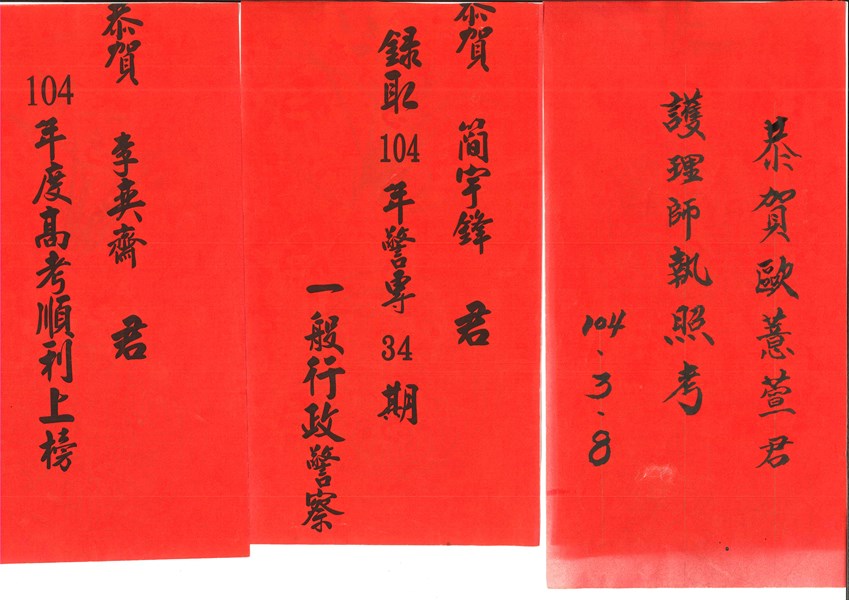 恭賀歐薏萱君
護理師執照考
104.3.8
恭賀 簡宇鋒 君
錄取104年警專34期
一般行政警察
恭賀 李奕齋 君
104年度高考順利上榜